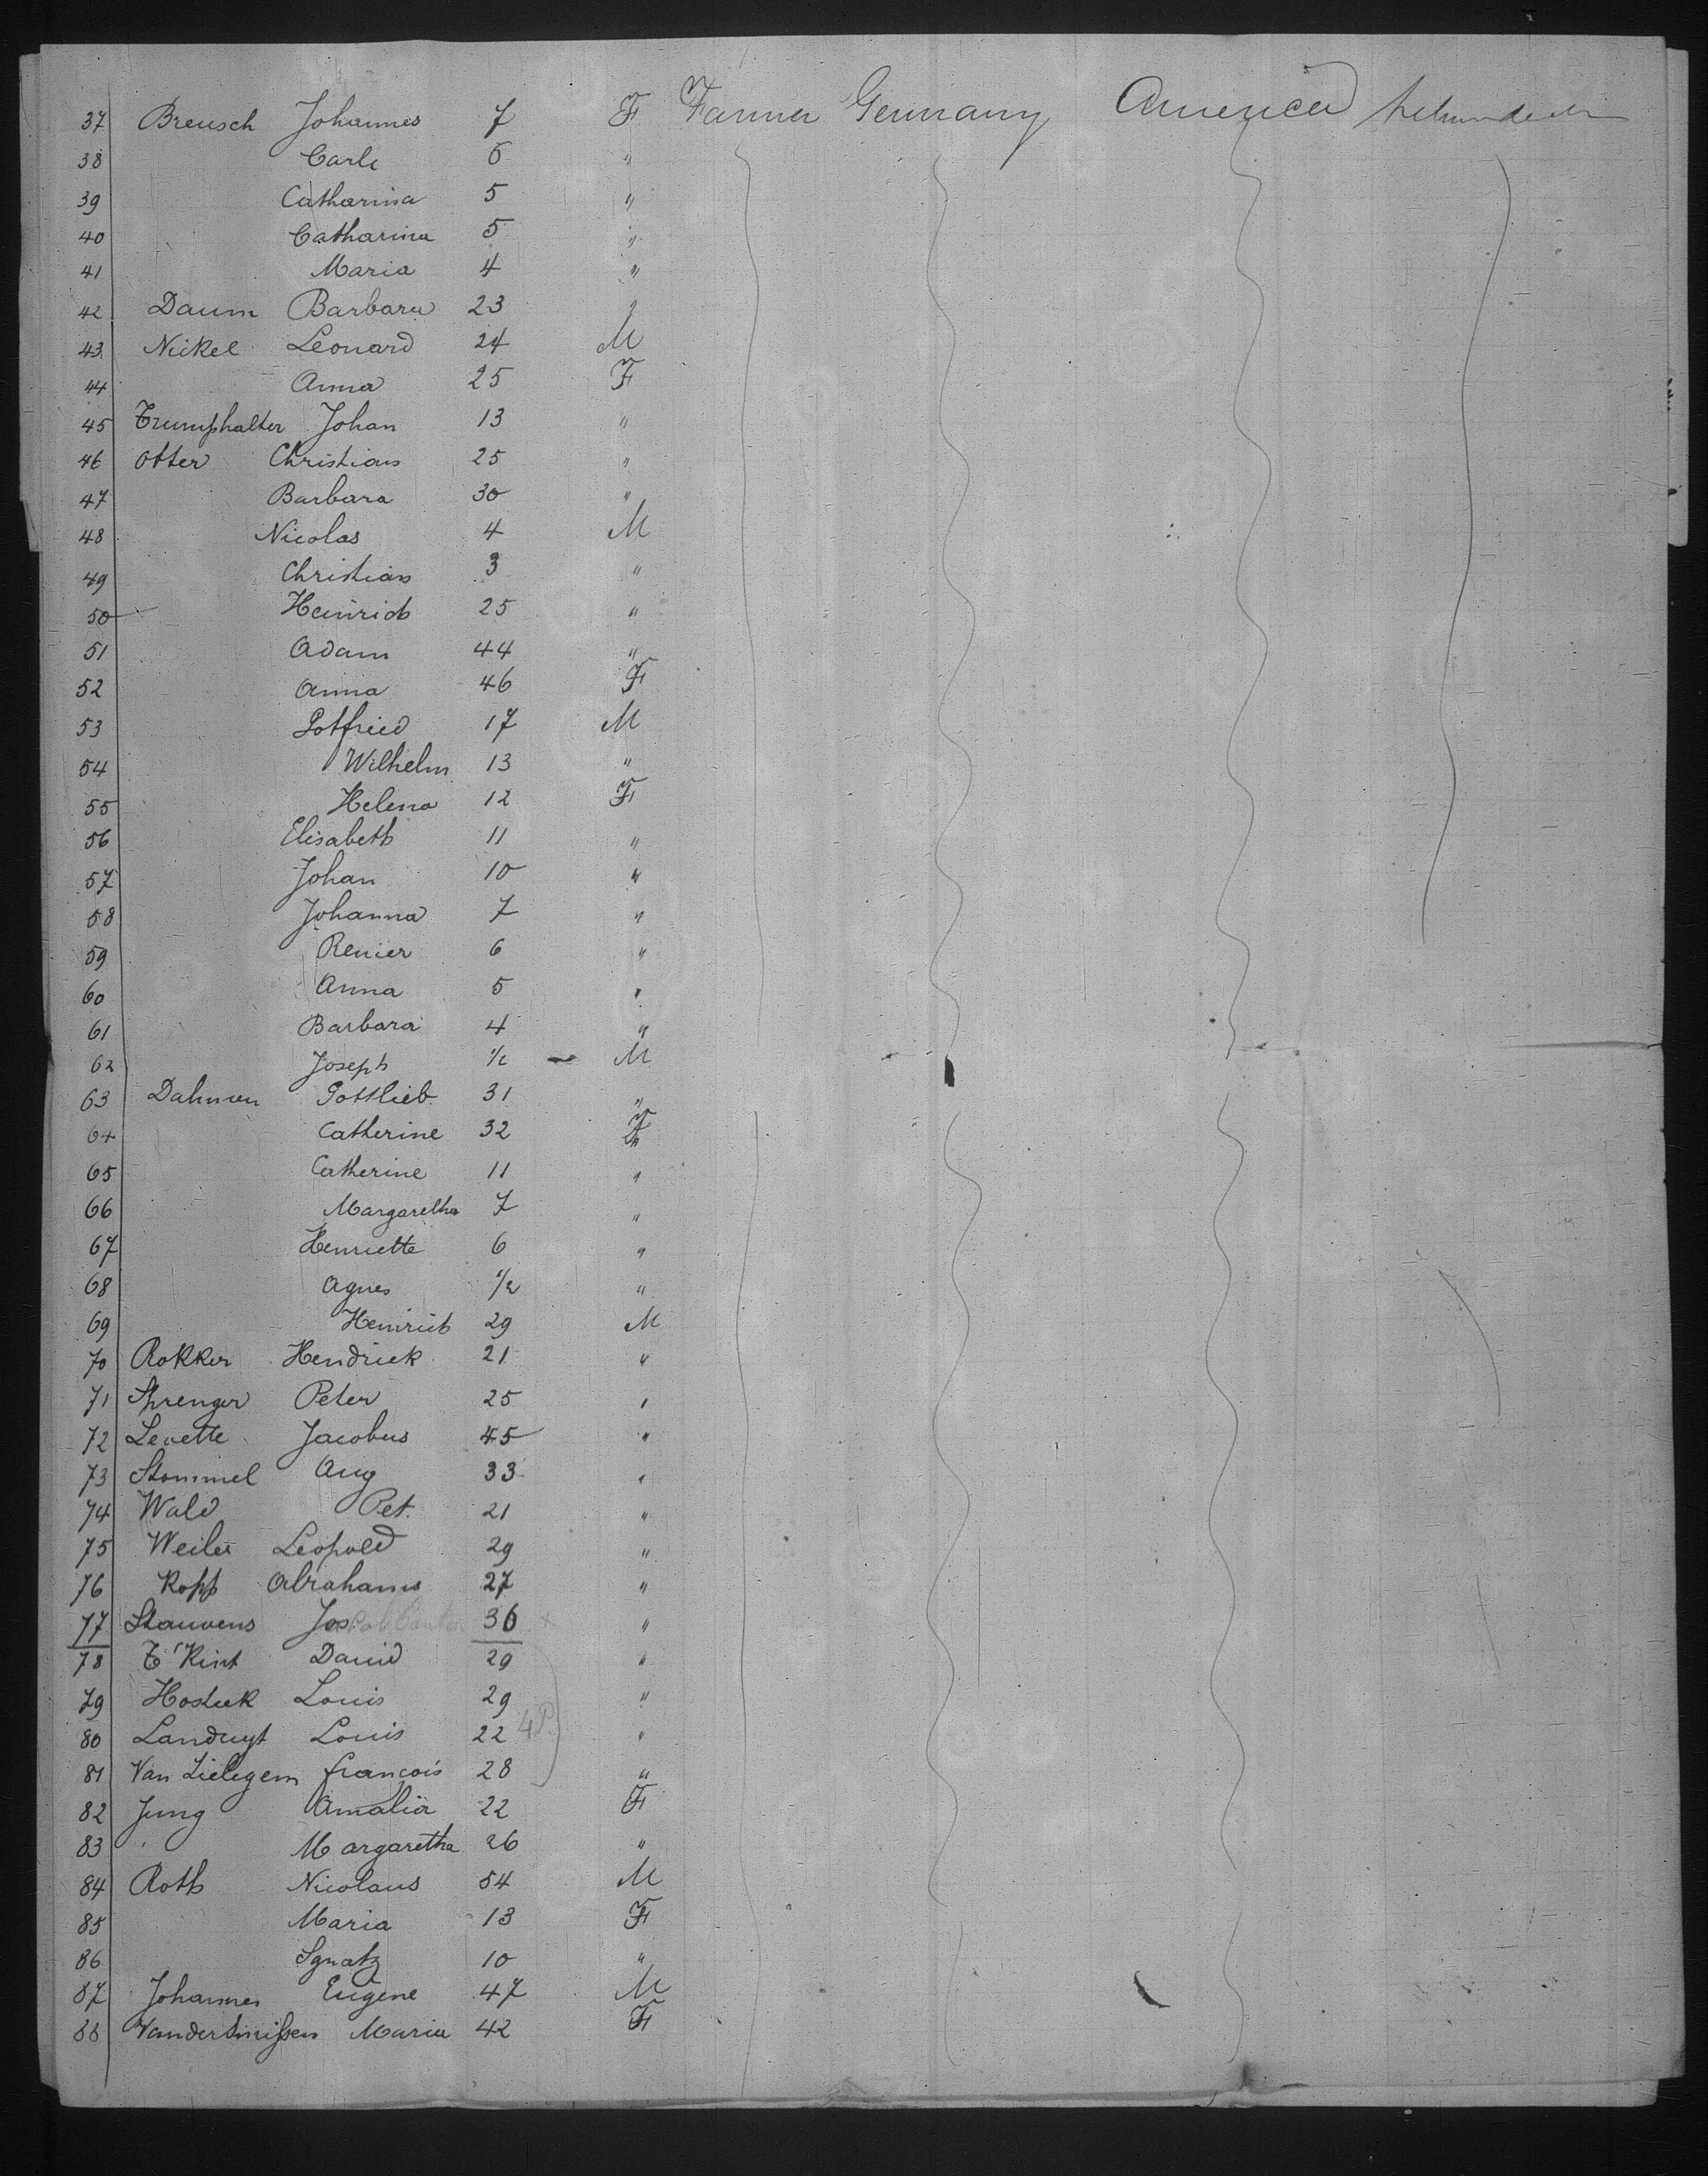 37 Breusch Johannes 7 F Farmer Germany America
38 Carle 6 "
39 Catharina 5 "
40 Catharina 5 "
41 Maria 4 "
42 Daum Barbara 23 "
43 Nickel Leonard 24 M
44 Anna 25 F
45 Trumphalter Johan 13 "
46 Otter Christian 25 "
47 Barbara 30 "
48 Nicolas 4 M
49 Christian 3 "
50 Heinrich 25 "
51 Adam 44 "
52 Anna 46 F
53 Gotfried 17 M
54 Wilhelm 13 "
55 Helena 12 F
56 Elisabeth 11 "
57 Johan 10 "
58 Johanna 7 "
59 Renier 6 "
60 Anna 5 "
61 Barbara 4 "
62 Joseph 1/2 M
63 Dahmen Gottlieb 31 "
64 Catherine 32 F
65 Catherine 11 "
66 Margaretha 7 "
67 Henriette 6 "
68 Agnes 1/2 "
69 Heinrich 29 M
70 Rokker Hendrick 21 "
71 Sprenger Peter 25 "
72 Levette Jacobus 45 "
73 Stommel Aug 33 "
74 Wald Pet. 21 "
75 Weiler Leopold 29 "
76 Kopp Abrahams 27 "
77 Stauvens Jos 36 "
78 T'Kint David 29 "
79 Louis 29 "
80 Landuyt Louis 22 4P "
81 Van Lielegem françois 28 "
82 Jung Amalia 22 F
83 Margaretha 26 "
84 Roth Nicolaus 54 M
85 Maria 13 F
86 Ignatz 10 "
87 Johannes Eugene 47 M
88 Vandersmissen Maria 42 F